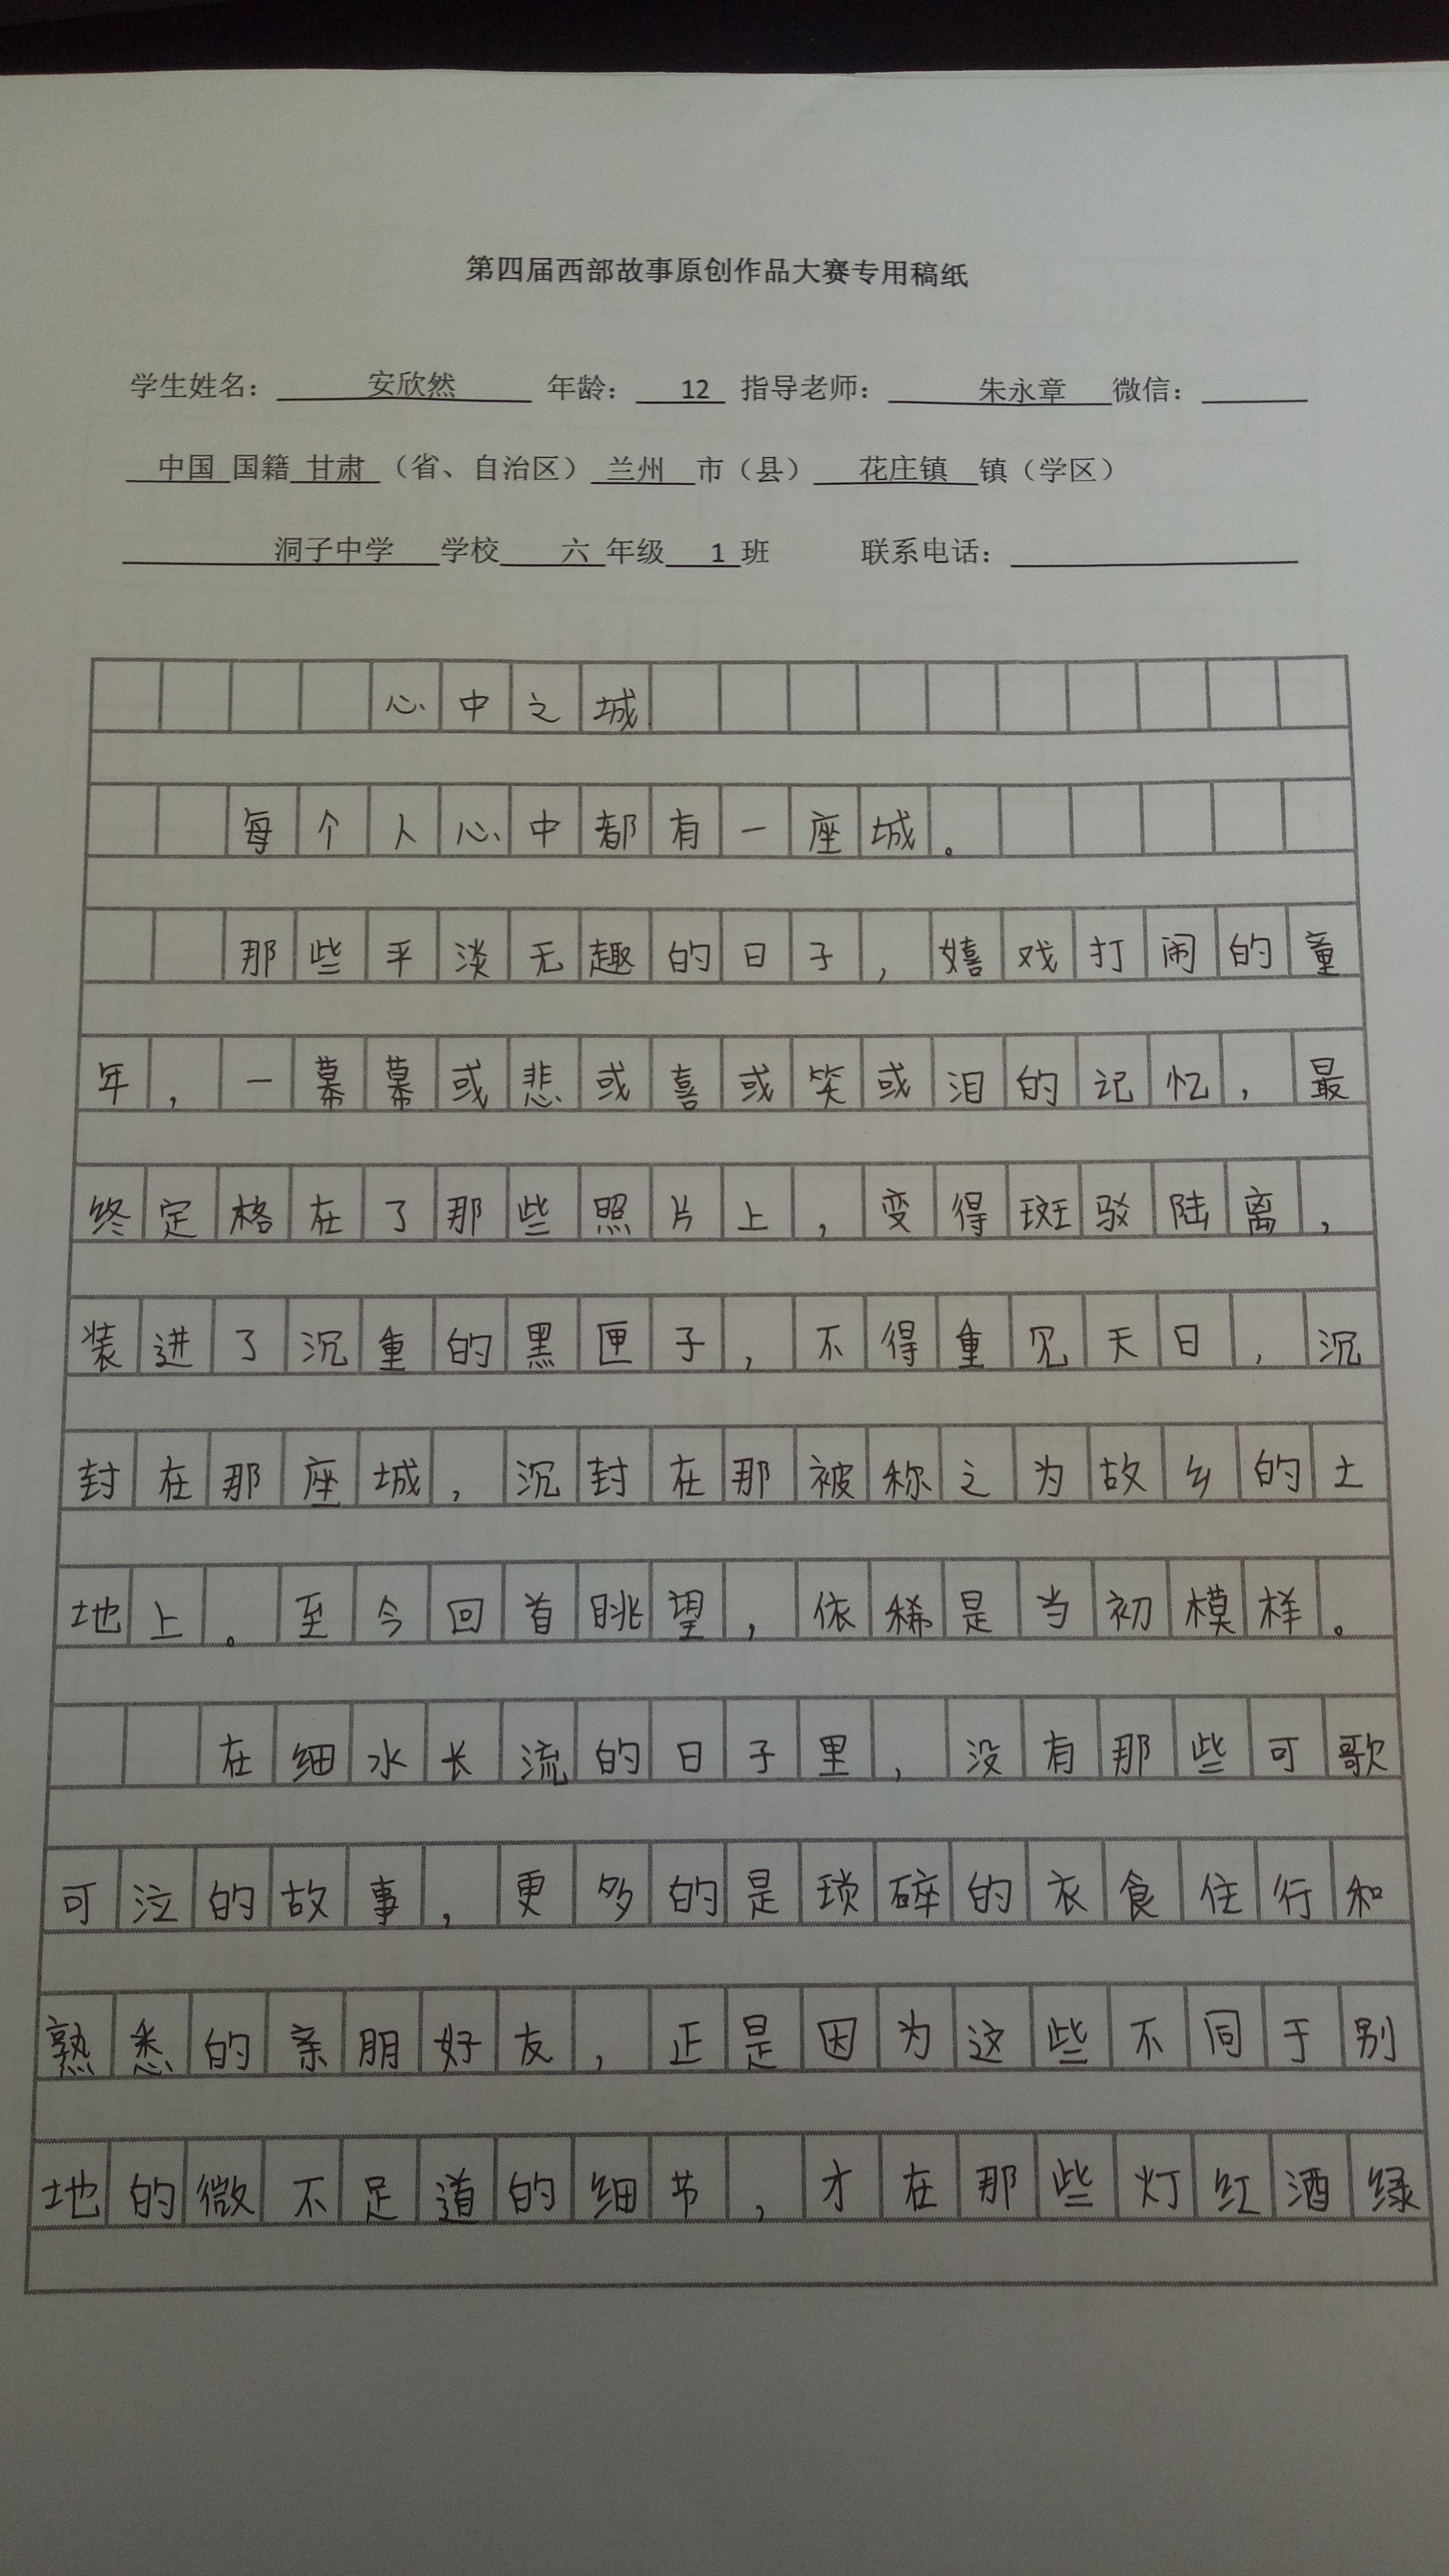 第四届西部故事原创作品大赛专用稿纸
学生姓名： 安欣然 年龄： 12 指导老师： 朱永章 微信：
中国 国籍 甘肃 （省、自治区） 兰州 市（县） 花庄镇 镇（学区）
洞子中学 学校 六 年级 1 班 联系电话：
心中之城
每个人心中都有一座城。
那些平淡无趣的日子，嬉戏打闹的童
年，一幕幕或悲或喜或笑或泪的记忆，最
终定格在了那些照片上，变得斑驳陆离，
装进了沉重的黑匣子，不得重见天日，沉
封在那座城，沉封在那被称之为故乡的土
地上。至今回首眺望，依稀是当初模样。
在细水长流的日子里，没有那些可歌
可泣的故事，更多的是琐碎的衣食住行和
熟悉的亲朋好友，正是因为这些不同于别
地的微不足道的细节，才在那些灯红酒绿